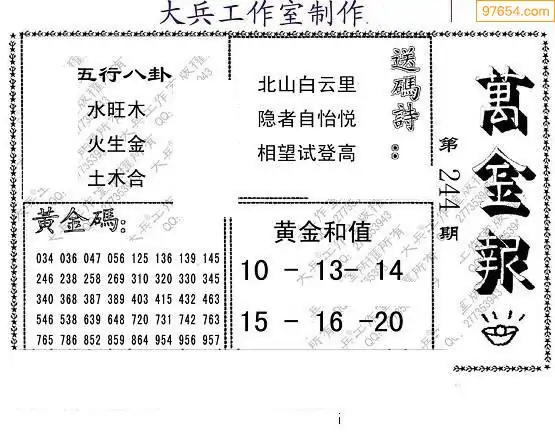 大兵工作室制作
97654.com
五行八卦
水旺木
火生金
土木合
北山白云里
隐者自怡悦
相望试登高
送碼詩：
第244期
萬金報
黄金碼：
034 036 047 056 125 136 139 145
246 238 258 269 310 320 330 345
340 368 387 389 403 415 432 463
546 538 639 648 720 731 742 763
765 786 852 859 864 954 956 957
黄金和值
10 － 13－ 14
15 － 16 －20
i